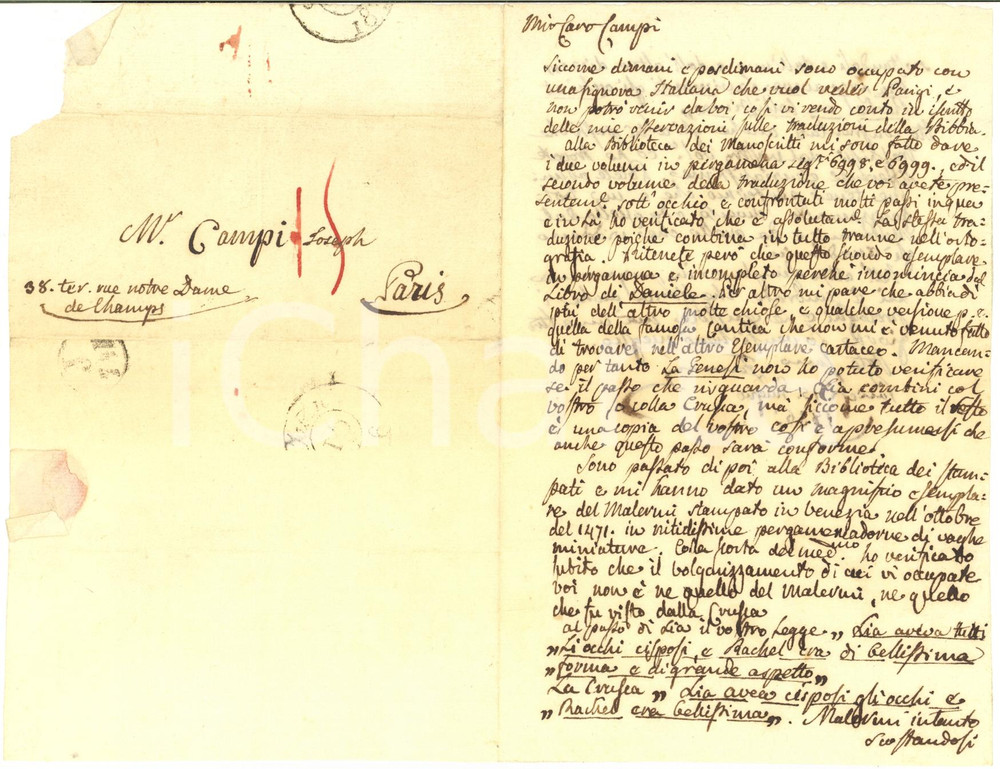 Mr. Campi Joseph
Paris
38. ter. rue notre Dame
de Champs
Mio Caro Campi
Siccome dimani e posdimani sono occupato con
una signora Italiana che vuol veder Parigi, e
non potrò venir da voi, così vi rendo conto in iscritto
delle mie osservazioni sulle traduzioni della Bibbia.
alla Biblioteca dei Manoscritti mi sono fatto dare
i due volumi in pergamena segti 6998. e 6999. ed il
secondo volume della traduzione che voi avete pre-
sentemte sott'occhio e confrontati molti passi in qua
e in là ho verificato che è assolutamte La stessa tra-
duzione poiche combina in tutto tranne nell'orto-
grafia. Ritenete però che questo secondo esemplare
in pergamena è incompleto perchè incomincia dal
Libro di Daniele. Per altro mi pare che abbia di
più dell'altro molte chiose, e qualche versione p.e.
quella della famosa Cantica che non mi è venuto fatto
di trovare nell'altro Esemplare cartaceo. Mancan-
do per tanto La Genesi non ho potuto verificare
se il passo che risguarda Lia combini col
vostro o colla Crusca, ma siccome tutto il resto
è una copia del vostro così è a presumersi che
anche questo passo sarà conforme.
Sono passato di poi alla Biblioteca dei Stam-
pati e mi hanno dato un magnifico esempla-
re del Malermi stampato in Venezia nell'ottobre
del 1471. in nitidissime pergamene adorne di vaghe
miniature. Colla scorta del medmo ho verificato
subito che il volgarizzamento di cui vi occupate
voi non è nè quello del Malermi, nè quello
che fu visto dalla Crusca
al passo di Lia il vostro Legge „ Lia aveva tutti
„ Li occhi cisposi, e Rachel era di bellissima
„ forma e di grande aspetto „
La Crusca „ Lia avea cisposi gli occhi e
„ Rachel era bellissima „. Malermi intanto
scostandosi